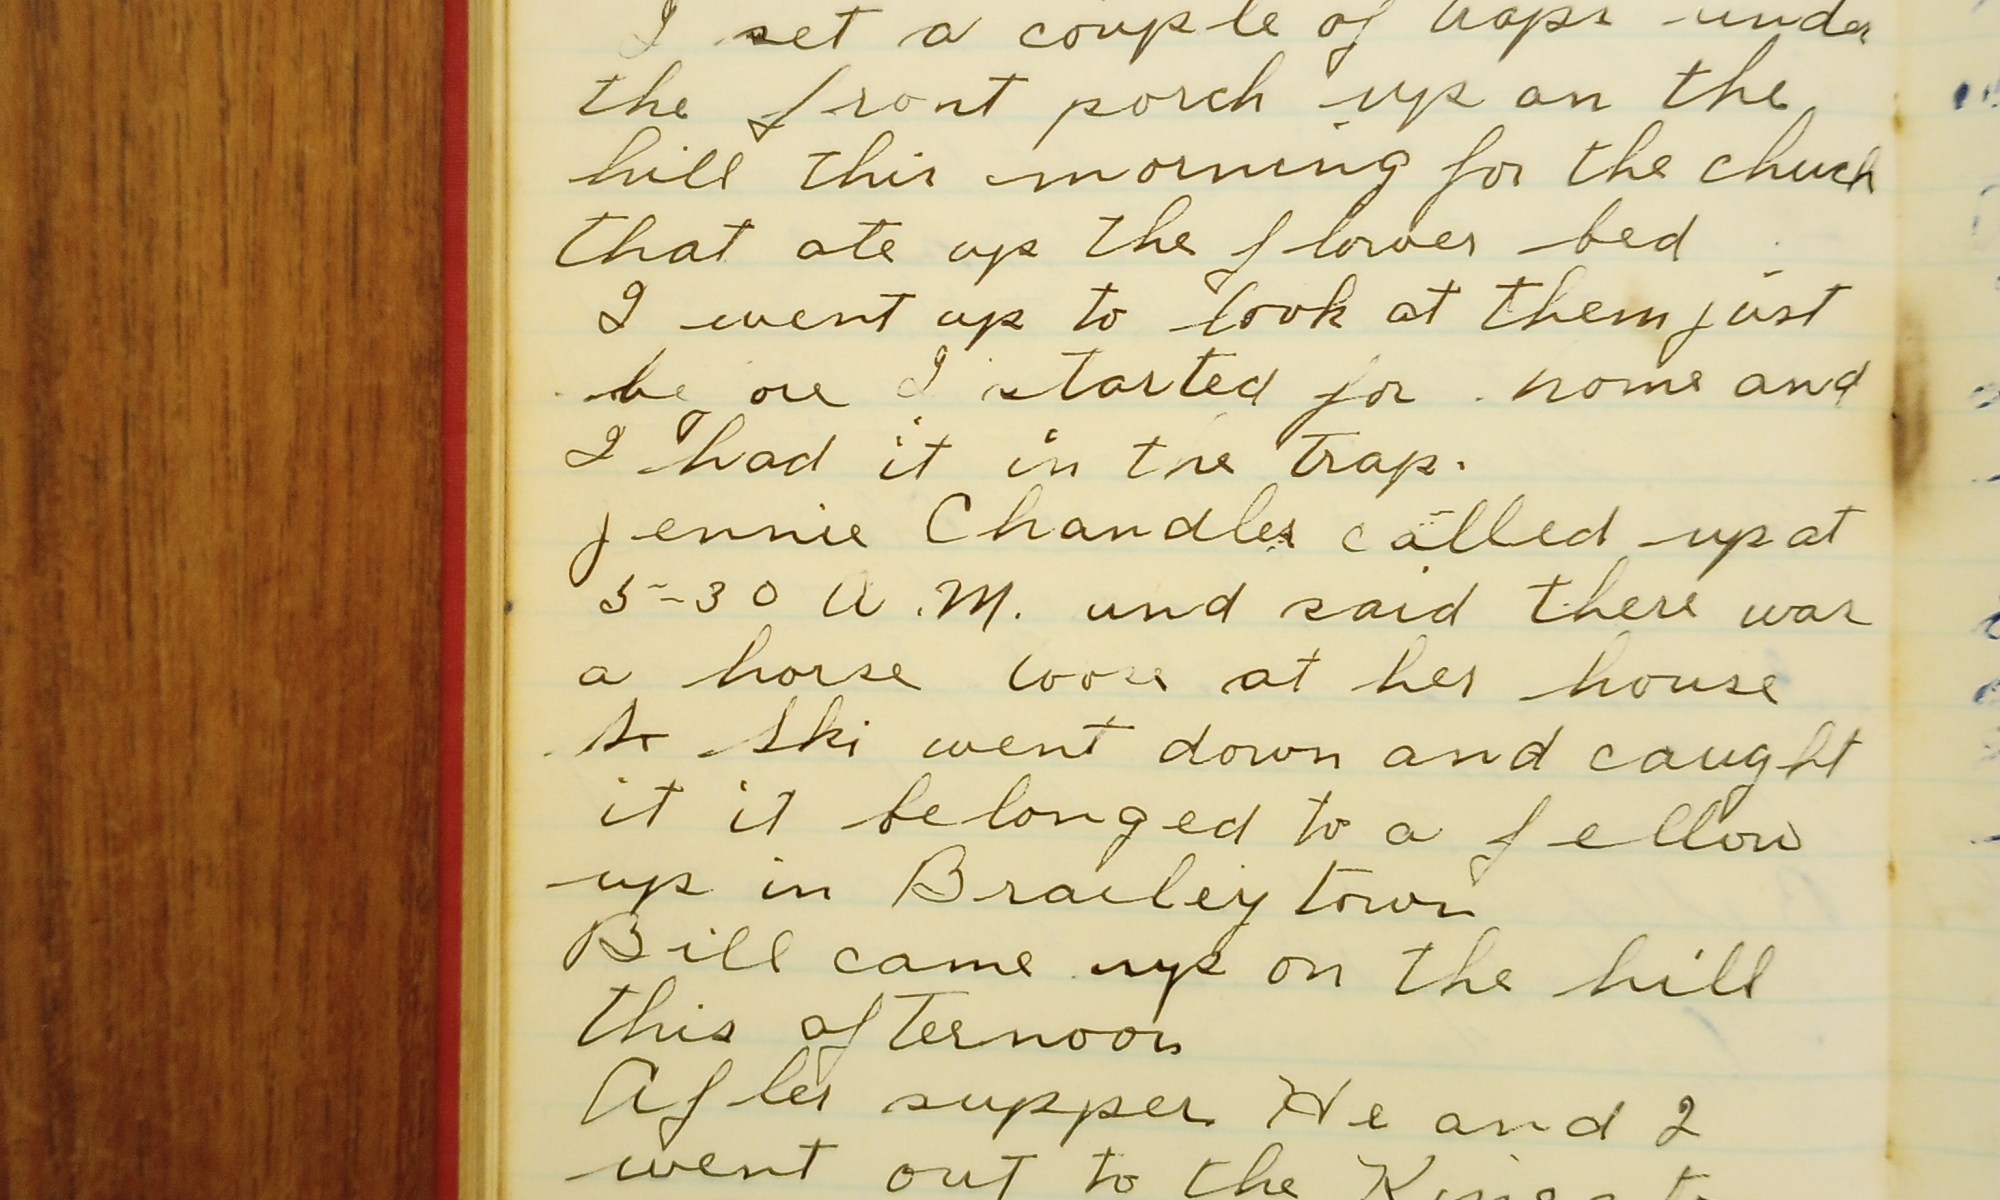 I set a couple of traps under
the front porch up on the
hill this morning for the chuck
that ate up the flower bed
I went up to look at them just
before I started for home and
I had it in the trap.
Jennie Chandler called up at
5-30 A.M. and said there was
a horse loose at her house
So Ski went down and caught
it it belonged to a fellow
up in Braileytown
Bill came up on the hill
this afternoon
After supper He and I
went out to the